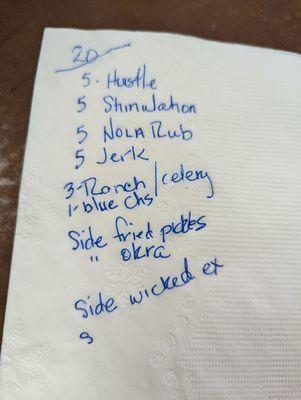 20
5 - Hustle
5 Stimulation
5 NOLA Rub
5 Jerk
3-Ranch / Celery
1-blue chs
Side fried pickles
" okra
Side wicked ex
9